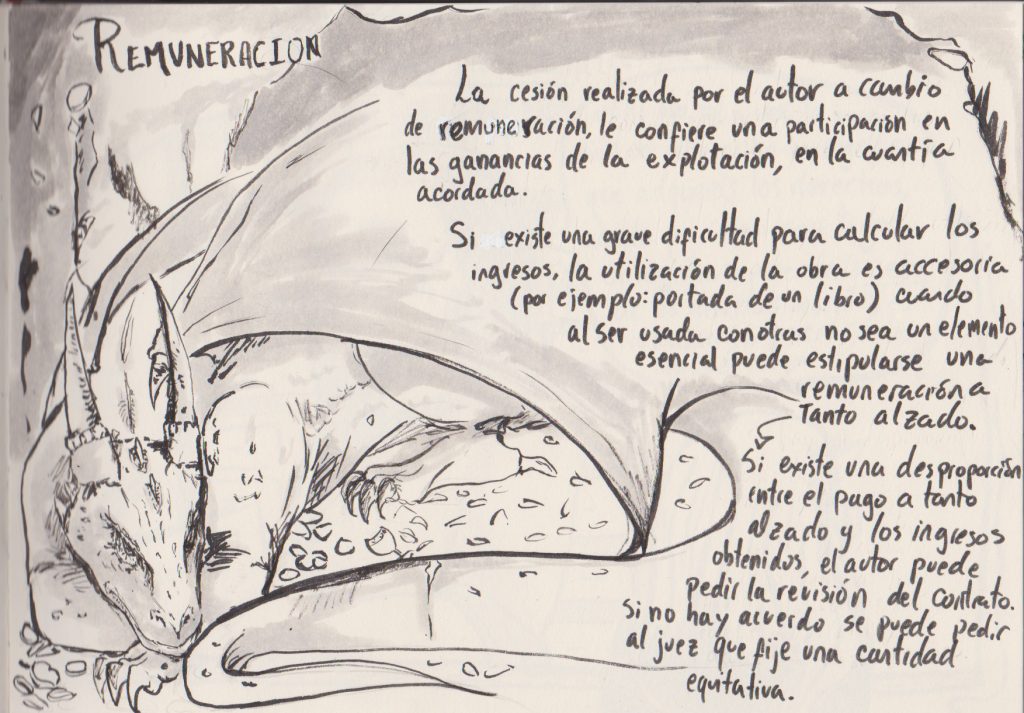 REMUNERACION
La cesión realizada por el autor a cambio
de remuneración, le confiere una participación en
las ganancias de la explotación, en la cuantía
acordada.
Si existe una grave dificultad para calcular los
ingresos, la utilización de la obra es accesoria
(por ejemplo: portada de un libro) cuando
al ser usada con otras no sea un elemento
esencial puede estipularse una
remuneración a
Tanto alzado.
Si existe una desproporción
entre el pago a tanto
alzado y los ingresos
obtenidos, el autor puede
pedir la revisión del contrato.
Si no hay acuerdo se puede pedir
al juez que fije una cantidad
equitativa.